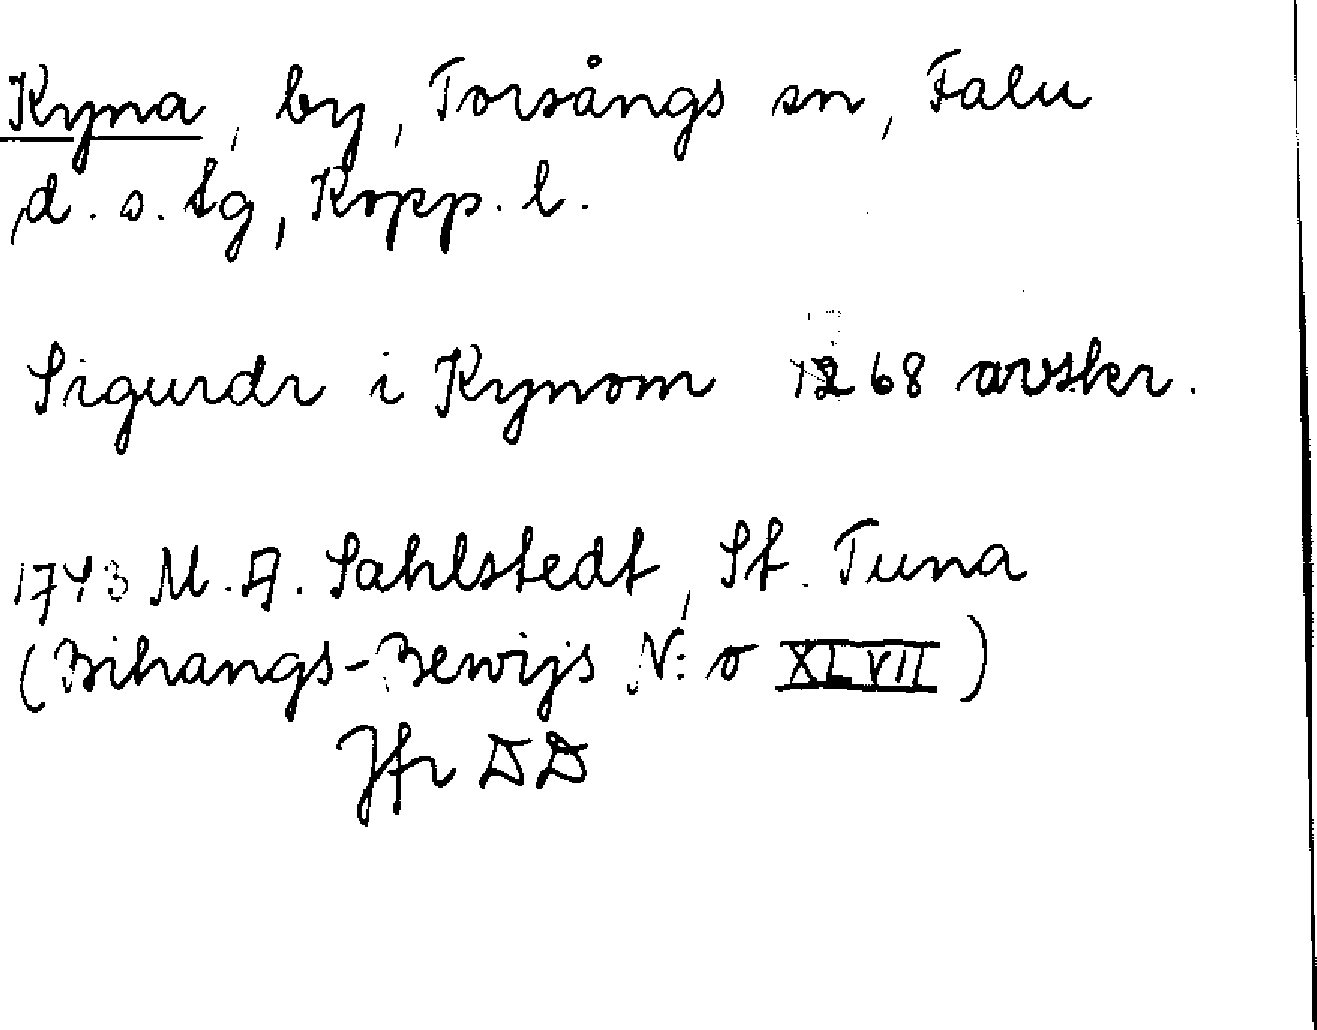 Kyna, by, Torsångs sn, Falu
d. s. tg, Kopp. l.
Sigurdr i Kynom 1268 avskr.
1743 M. A. Sahlstedt, St. Tuna
(Bihangs-Bewijs N:o XLVII)
Jfr DD